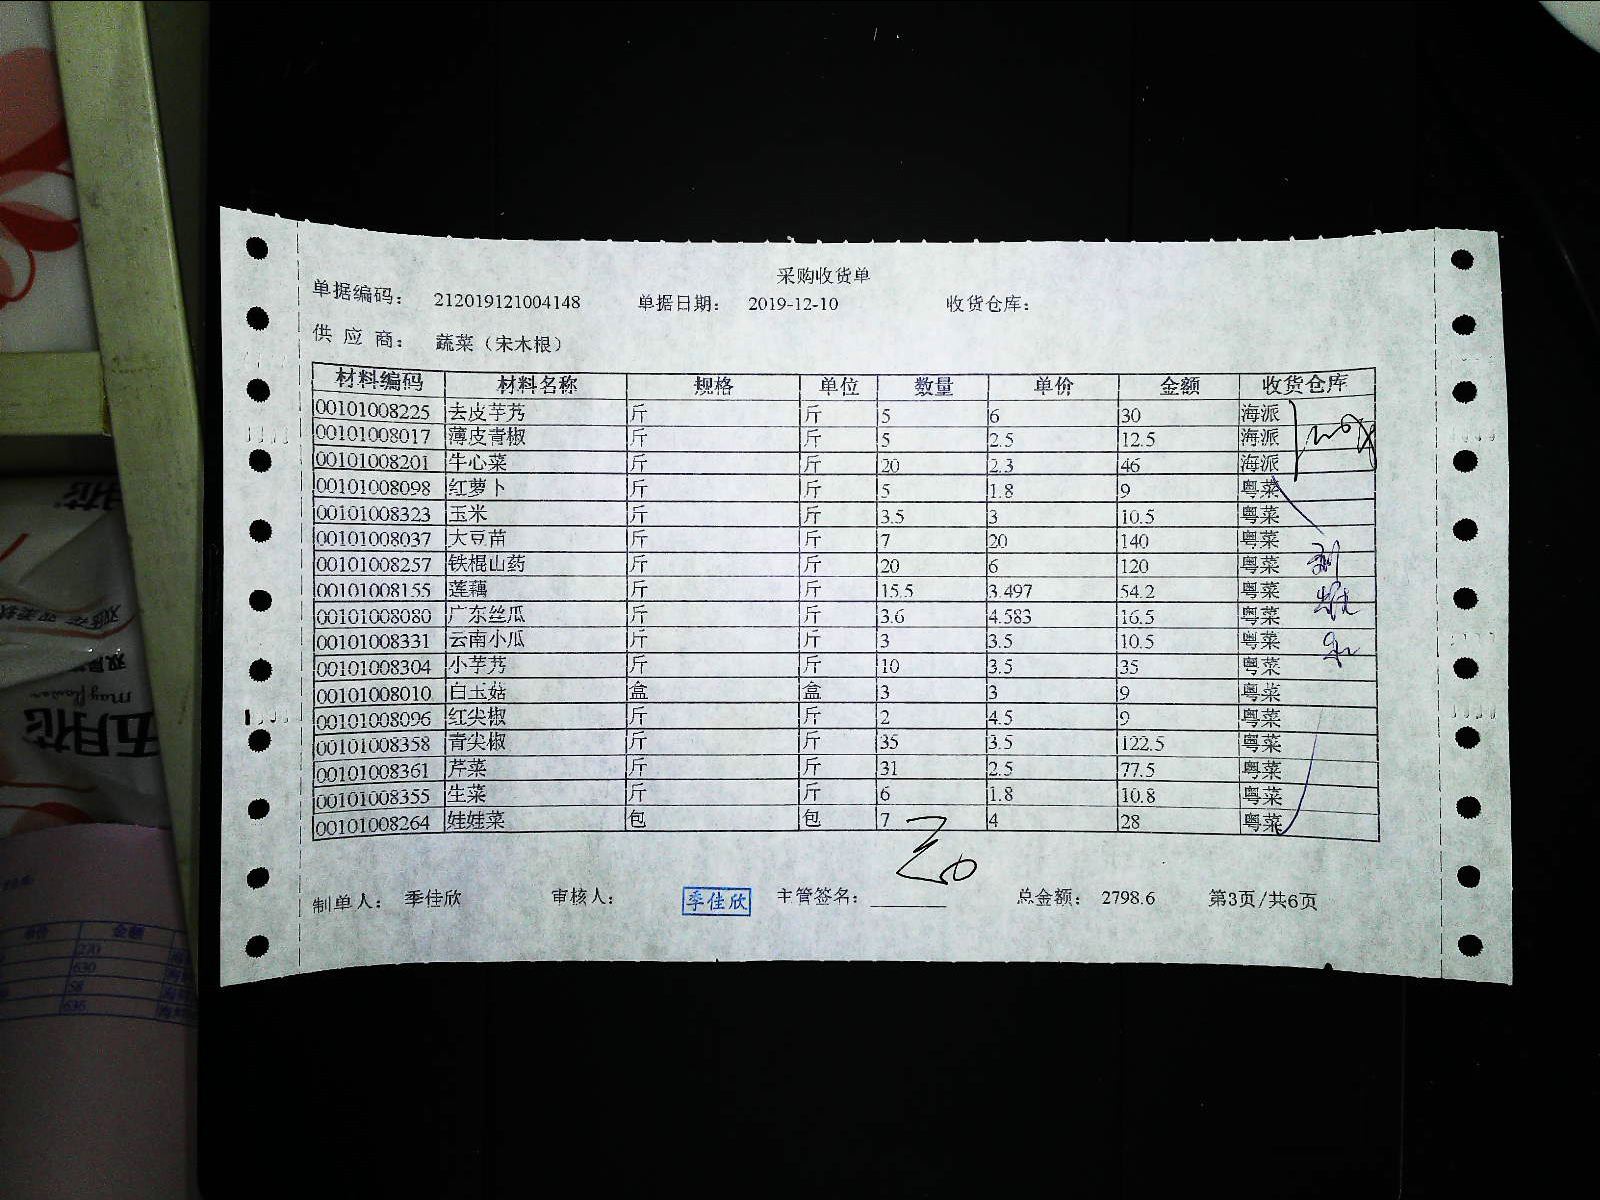 采购收货单
单据编码： 212019121004148 单据日期： 2019-12-10 收货仓库：
供 应 商： 蔬菜（宋木根）
材料编码 材料名称 规格 单位 数量 单价 金额 收货仓库
00101008225 去皮芋艿 斤 斤 5 6 30 海派
00101008017 薄皮青椒 斤 斤 5 2.5 12.5 海派
00101008201 牛心菜 斤 斤 20 2.3 46 海派
00101008098 红萝卜 斤 斤 5 1.8 9 粤菜
00101008323 玉米 斤 斤 3.5 3 10.5 粤菜
00101008037 大豆苗 斤 斤 7 20 140 粤菜
00101008257 铁棍山药 斤 斤 20 6 120 粤菜
00101008155 莲藕 斤 斤 15.5 3.497 54.2 粤菜
00101008080 广东丝瓜 斤 斤 3.6 4.583 16.5 粤菜
00101008331 云南小瓜 斤 斤 3 3.5 10.5 粤菜
00101008304 小芋艿 斤 斤 10 3.5 35 粤菜
00101008010 白玉菇 盒 盒 3 3 9 粤菜
00101008096 红尖椒 斤 斤 2 4.5 9 粤菜
00101008358 青尖椒 斤 斤 35 3.5 122.5 粤菜
00101008361 芹菜 斤 斤 31 2.5 77.5 粤菜
00101008355 生菜 斤 斤 6 1.8 10.8 粤菜
00101008264 娃娃菜 包 包 7 4 28 粤菜
制单人： 季佳欣 审核人： 季佳欣 主管签名： 总金额： 2798.6 第3页/共6页
五月花
mayflower
单价 金额
270
630
58
636